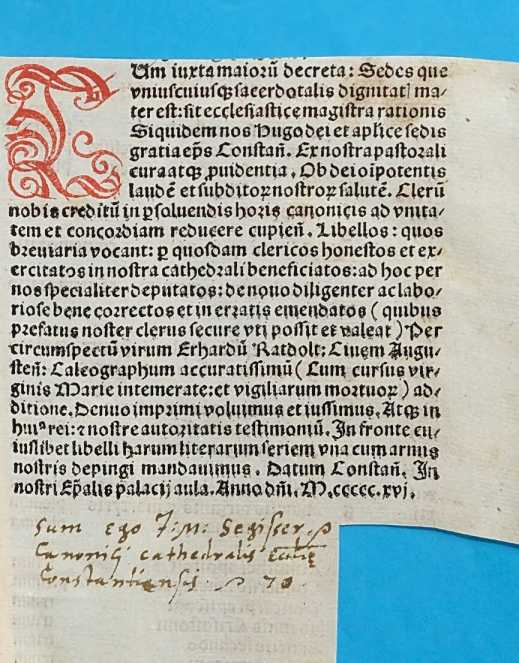 CUm iuxta maiorū decreta: Sedes que
vniuscuiusqꝫ sacerdotalis dignitatꝭ ma-
ter est: sit ecclesiastice magistra rationis
Siquidem nos Hugo dei et aplice sedis
gratia ep̄s Constan̄. Ex nostra pastorali
cura atqꝫ ꝓuidentia. Ob dei oīpotentis
laudē et subditoꝝ nostroꝝ salutē. Clerū
nobis creditū in ꝑsoluendis horis canonicis ad vnita-
tem et concordiam reducere cupien̄. Libellos: quos
breuiaria vocant: ꝑ quosdam clericos honestos et ex-
ercitatos in nostra cathedrali beneficiatos: ad hoc per
nos specialiter deputatos: de nouo diligenter ac labo-
riose bene correctos et in erratis emēdatos (quibus
prefatus noster clerus secure vti possit et valeat) Per
circumspectū virum Erhardū Ratdolt: Ciuem Augu-
sten̄: Calcographum accuratissimū (Cum cursus vir-
ginis Marie intemerate: et vigiliarum mortuoꝝ) ad-
ditione. Denuo imprimi voluimus et iussimus. Atqꝫ in
huiꝰ rei: ⁊ nostre autoritatis testimoniū. In fronte cu-
iuslibet libelli harum literarum seriem vna cum armis
nostris depingi mandauimus. Datum Constan̄. In
nostri Ep̄alis palacij aula. Anno dn̄i. M.ccccc.xvj.
Sum ego J: M: Segisser. p
Canonicj cathedralis Eccꝭie
Constantiensis. 70.